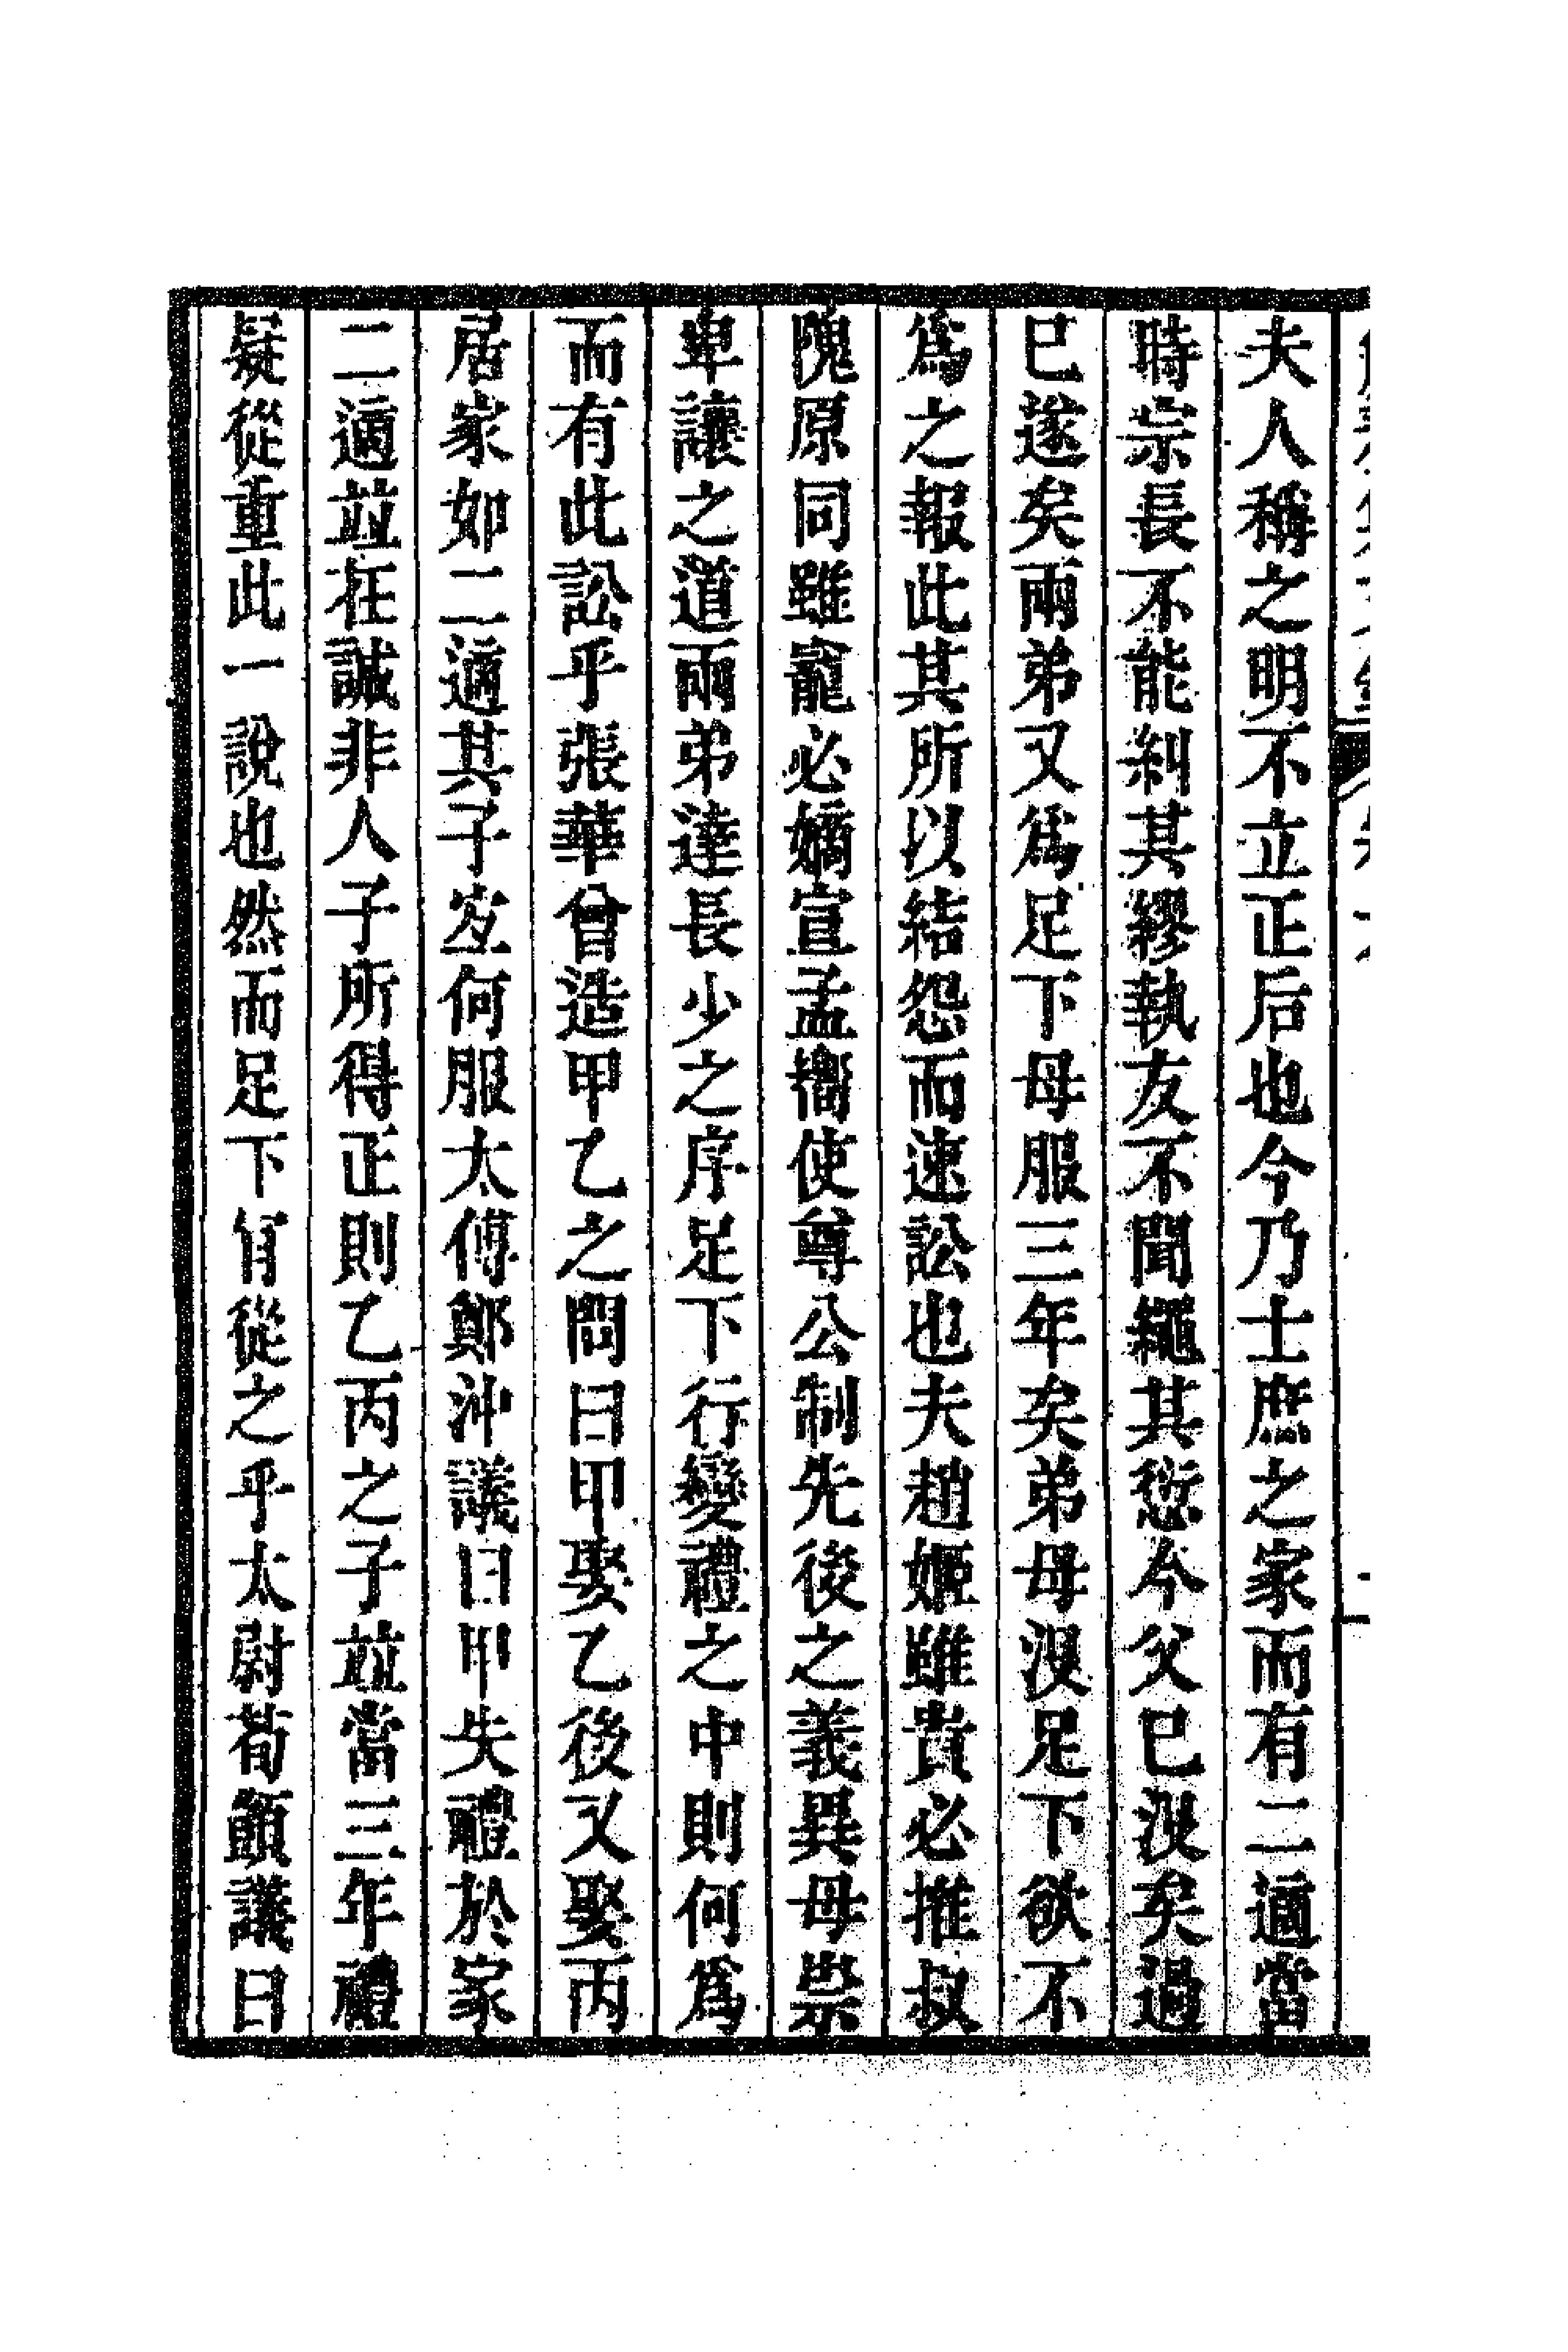 夫人稱之明不立正后也今乃士庶之家而有二適當
時宗長不能糾其繆執友不聞繩其愆今父已沒矣過
已遂矣兩弟又爲足下母服三年矣弟母沒足下欲不
爲之報此其所以結怨而速訟也夫趙姬雖貴必推叔
隗原同雖寵必嫡宣孟嚮使尊公制先後之義異母崇
卑讓之道兩弟達長少之序足下行變禮之中則何爲
而有此訟乎張華曾造甲乙之問曰甲娶乙後又娶丙
居家如二適其子宜何服太傅鄭沖議曰甲失禮於家
二適竝在誠非人子所得正則乙丙之子竝當三年禮
疑從重此一說也然而足下肯從之乎太尉荀顗議曰